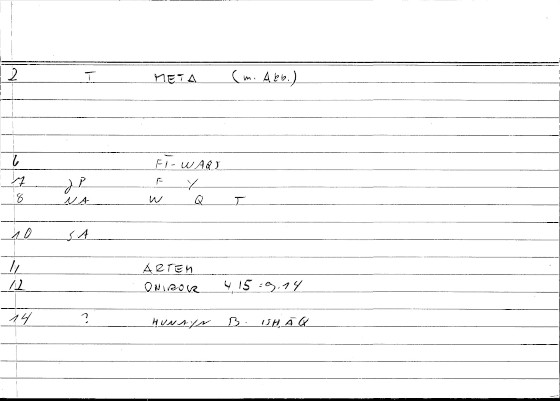 2 T META (m. Abb.)
6 FĪ-WAQT
7 JP F Y
8 NA W Q T
10 SA
11 ARTEM
12 ONIROK 4,15 = 9.14
14 ? ḤUNAYN B. ISḤĀQ